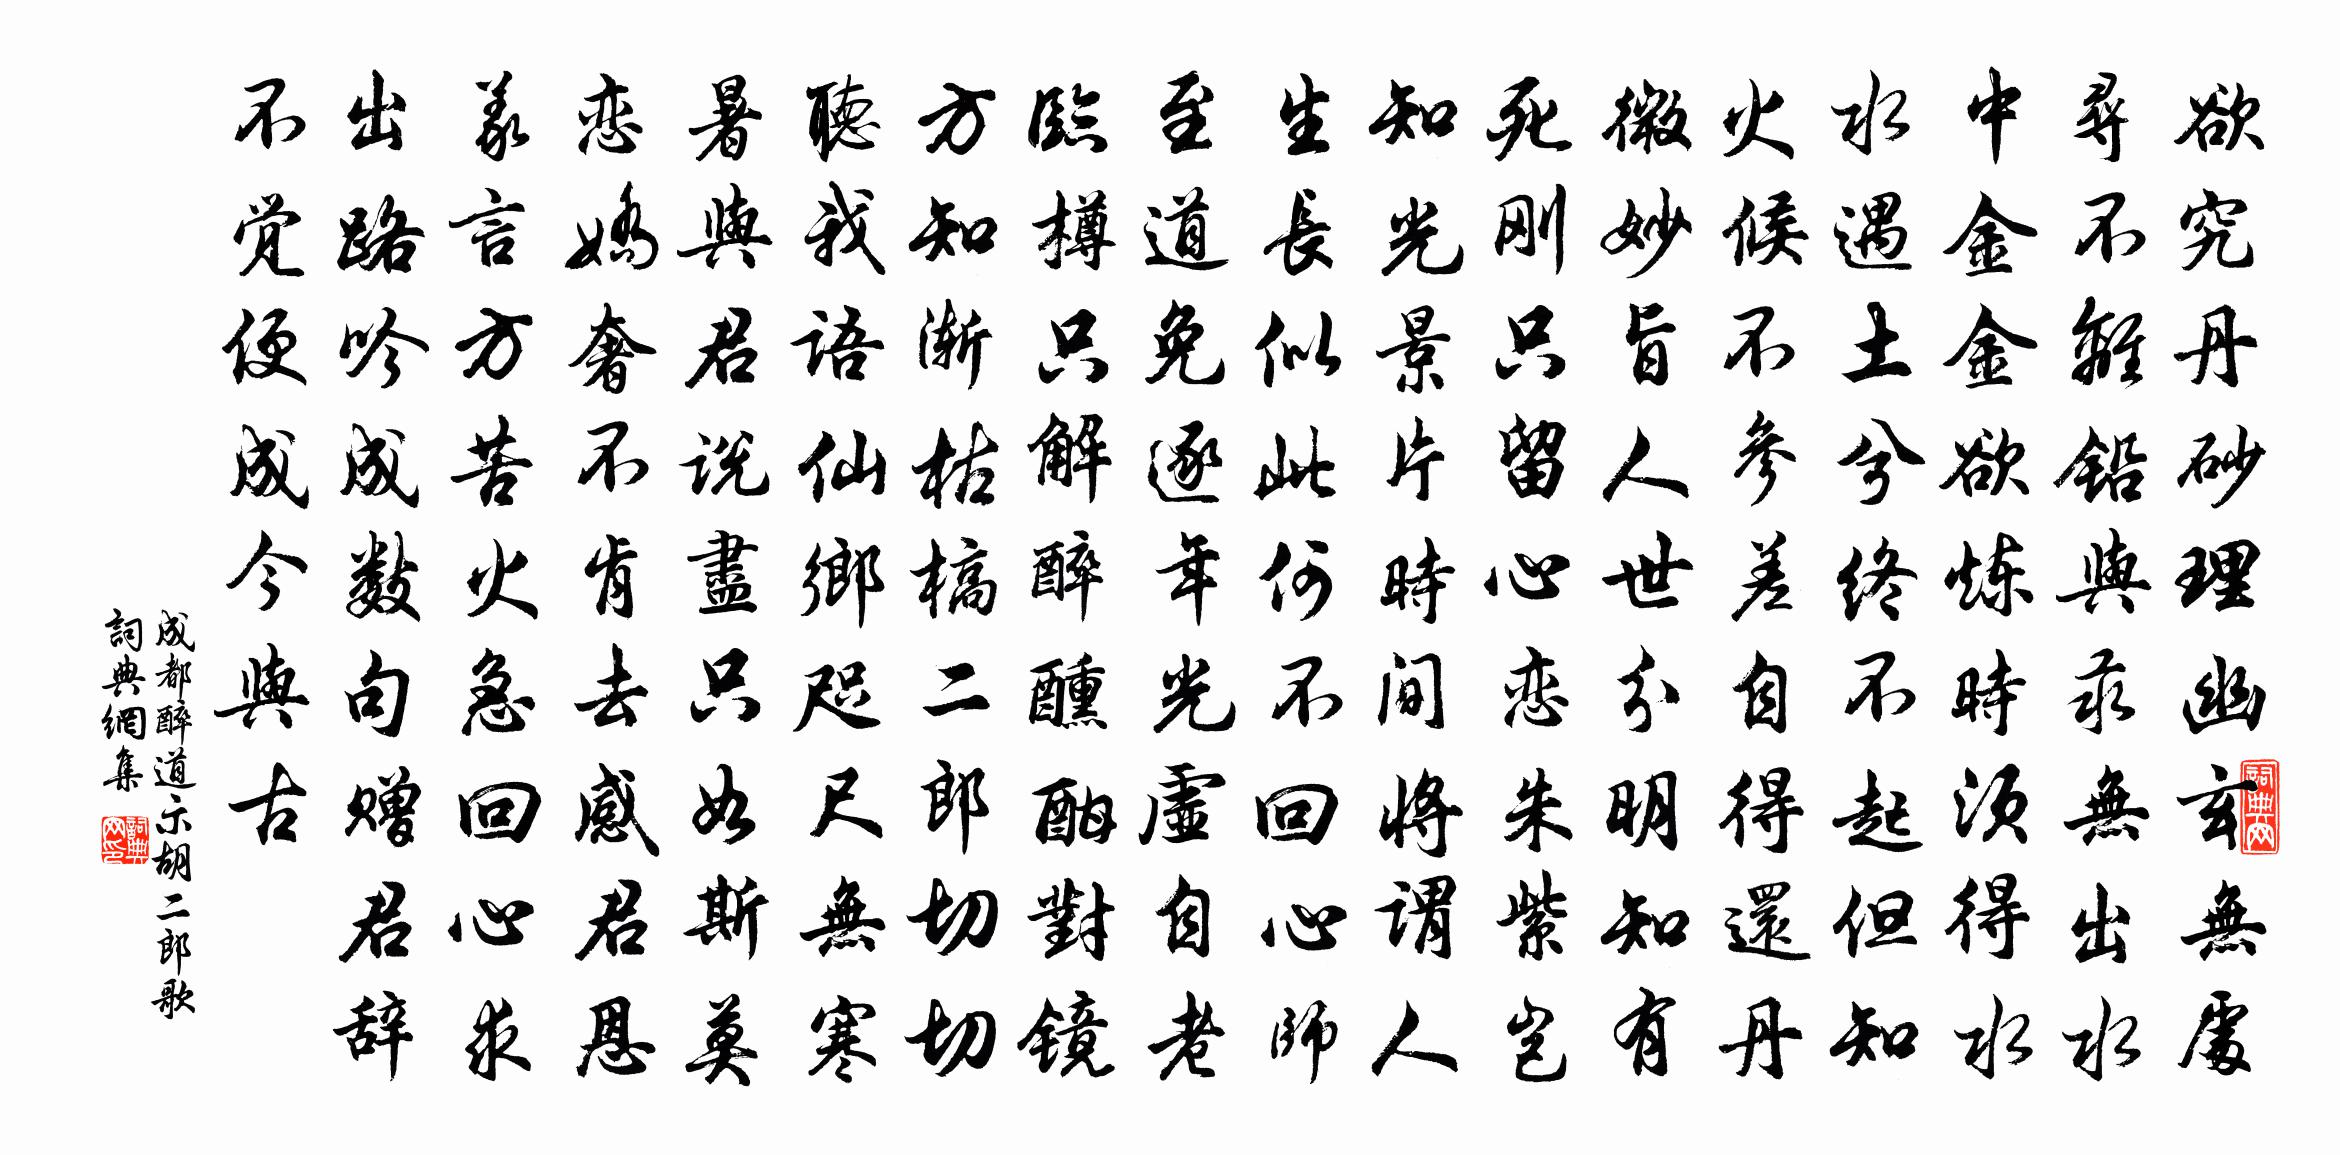 欲究丹砂理幽玄無處
尋不離鉛與汞無出水
中金金欲炼時須得水
水遇土兮終不起但知
火候不參差自得還丹
微妙旨人世分明知有
死刚只留心恋朱紫岂
知光景片時间將謂人
生長似此何不回心師
至道免逐年光虛自老
臨樽只解醉醺酣對镜
方知渐枯槁二郎切切
聽我語仙鄉咫尺無寒
暑與君説盡只如斯莫
恋嬌奢不肯去感君恩
義言方苦火急回心求
出路吟成數句赠君辞
不觉便成今與古
成都醉道示胡二郎歌
詞典網集
詞典网
詞典网印